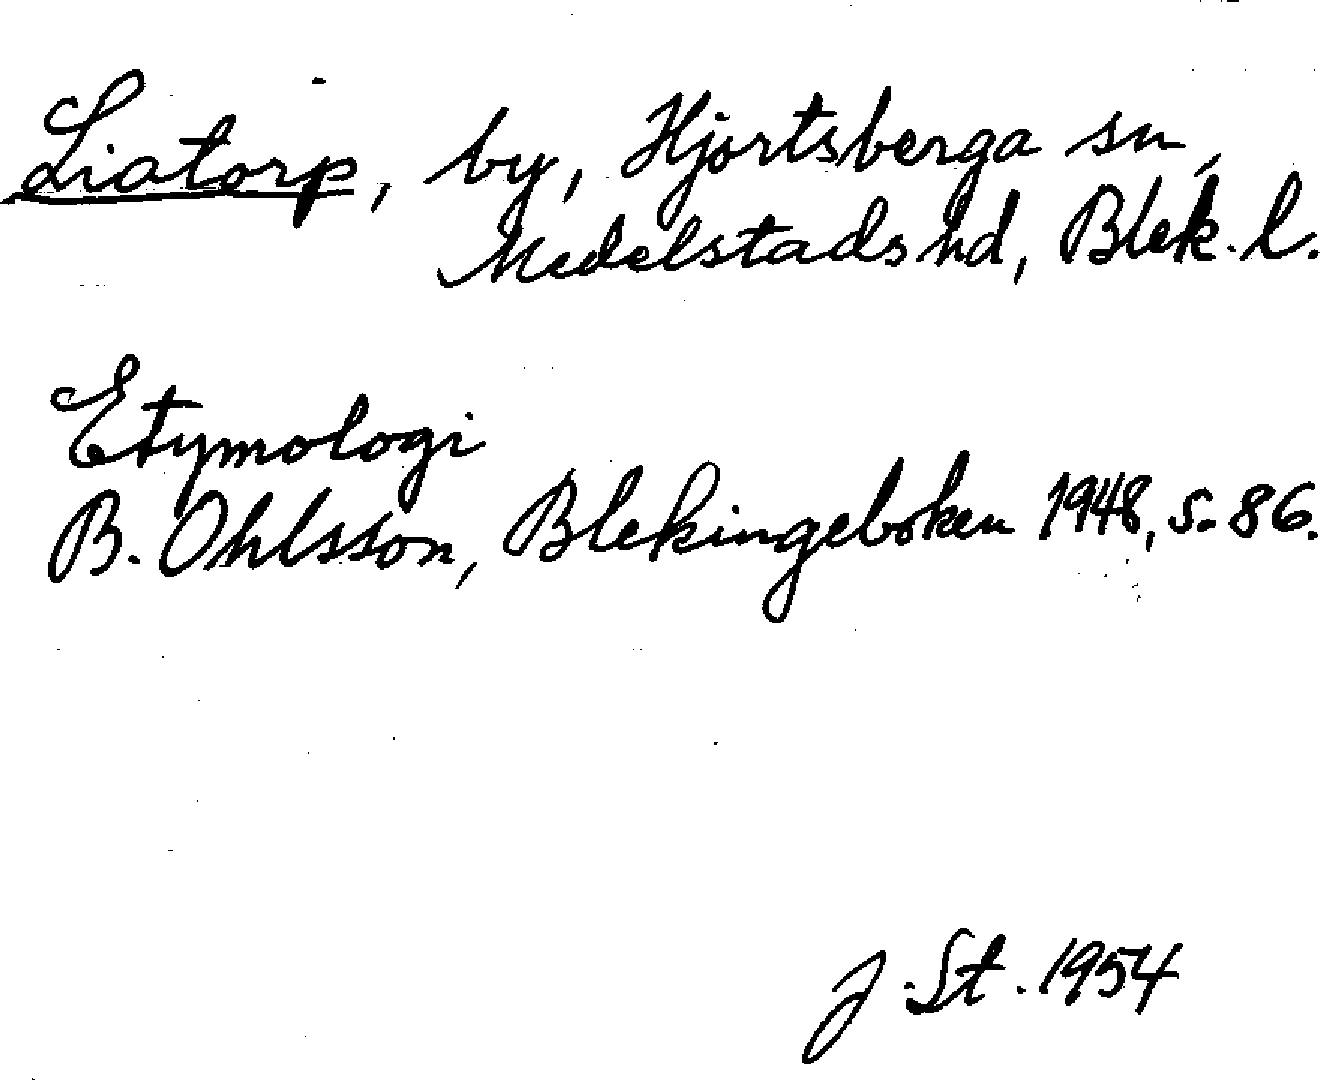 Liatorp, by, Hjortsberga sn,
Medelstads hd, Blek. l.
Etymologi
B. Ohlsson, Blekingeboken 1948, s. 86.
J. St. 1954